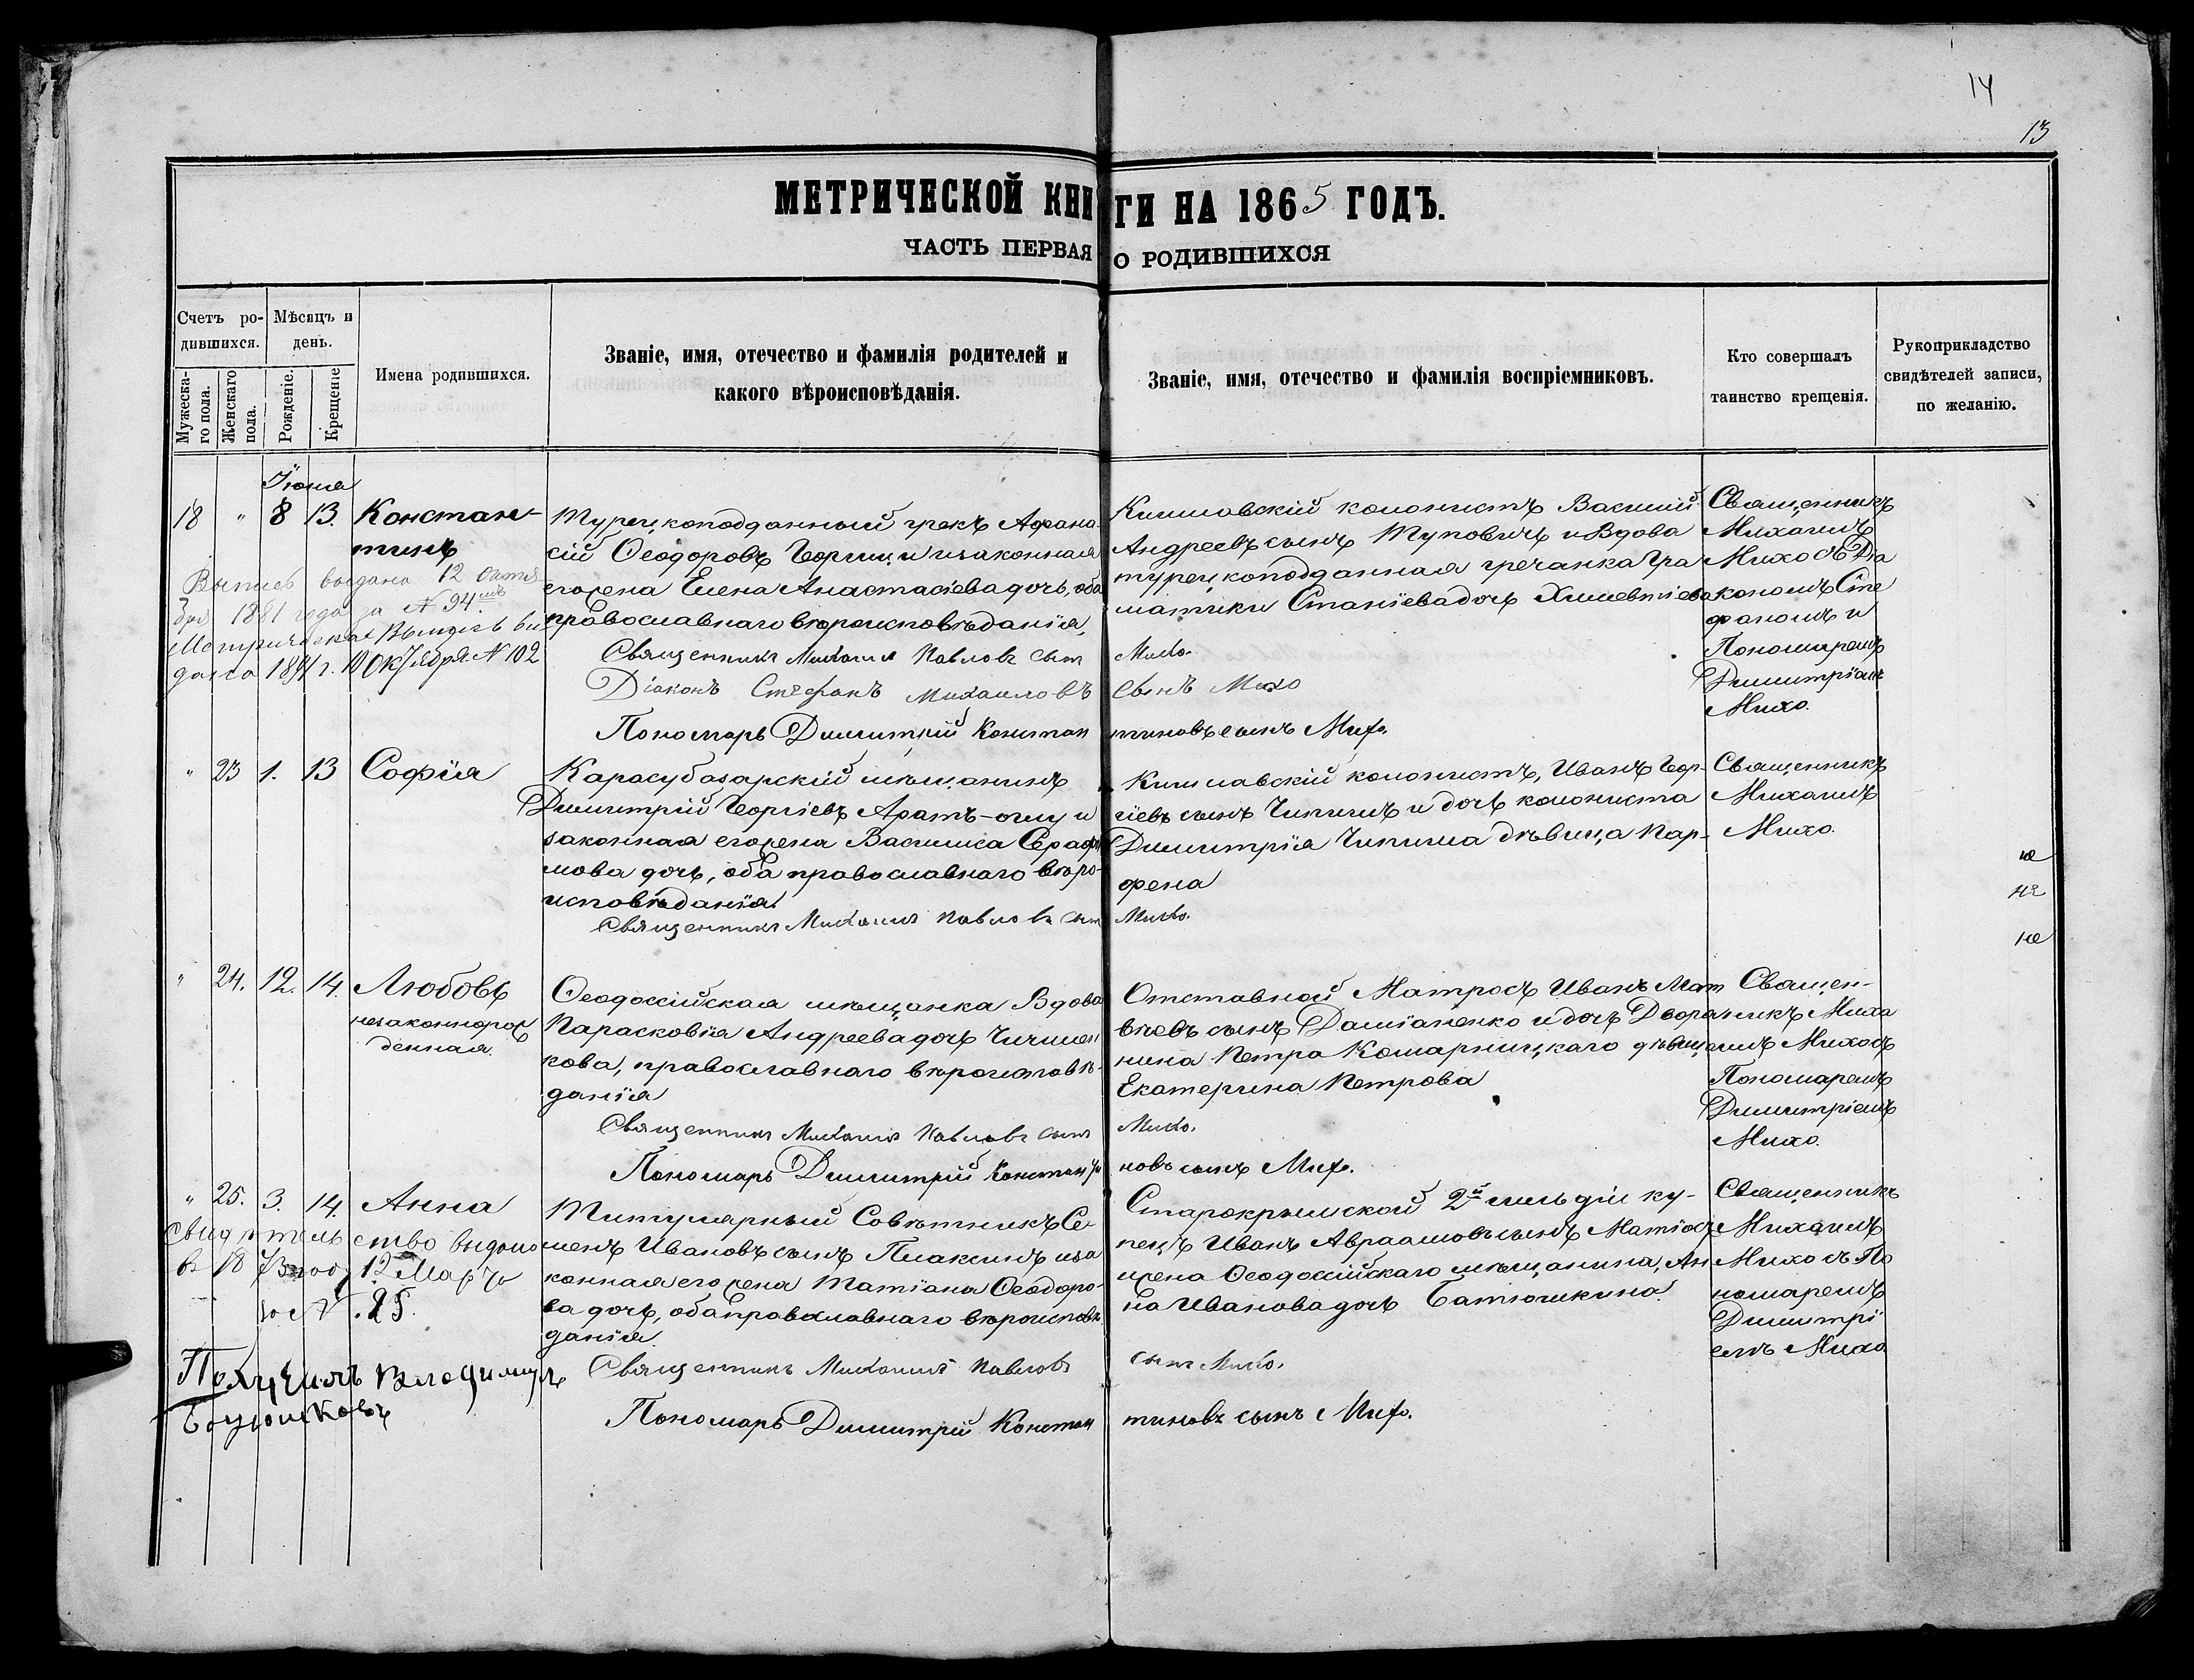 14
13
МЕТРИЧЕСКОЙ КНИГИ НА 1865 ГОДЪ.
ЧАСТЬ ПЕРВАЯ О РОДИВШИХСЯ
Счетъ родившихся.
Мужескаго пола.
Женскаго пола.
Мѣсяцъ и день.
Рожденіе.
Крещеніе
Имена родившихся.
Званіе, имя, отечество и фамилія родителей и
какого вѣроисповѣданія.
Званіе, имя, отечество и фамилія воспріемниковъ.
Кто совершалъ
таинство крещенія.
Рукоприкладство
свидѣтелей записи,
по желанію.
Іюня
18 " 8 13. Констан-
тинъ
Выпись выдана 12 Октя
бря 1881 года за N 94
Метрическая Выпись вы
дана 1891 г. 10 Октября N 102
Турецкоподданный грекъ Афана-
сій Ѳеодоровъ Георгиц и законная
его жена Елена Анастасіева дочь, оба
православнаго вѣроисповѣданія,
Священникъ Михаилъ Павловъ сынъ Михо.
Діаконъ Стефанъ Михаиловъ сынъ Михо
Пономарь Димитрій Констан тиновъ сынъ Михо.
Кишлавскій колонистъ Василій
Андреевъ сынъ Туповичъ и Вдова
турецкоподданная гречанка Гра
матики Станіева дочь
Священникъ
Михаилъ
Михо съ Діа
кономъ Сте
фаномъ и
Пономаремъ
Димитріемъ
Михо.
" 23 1. 13 Софія
Карасубазарскій мѣщанинъ
Димитрій Георгіевъ Арать-оглу и
законная его жена Василика Серафи
мова дочь, оба православнаго вѣро-
исповѣданія
Священникъ Михаилъ Павловъ сынъ Михо.
Кишлавскій колонистъ, Иванъ Геор-
гіевъ сынъ Чипчишъ и дочь колониста
Димитрія Чипчиша дѣвица Пар-
фена
Священникъ
Михаилъ
Михо.
не
не
не
" 24. 12. 14. Любовь
незаконнорож
денная.
Ѳеодосійская мѣщанка Вдова
Парасковія Андреева дочь
кова, православнаго вѣроисповѣ-
данія
Священникъ Михаилъ Павловъ сынъ Михо.
Пономарь Димитрій Константи новъ сынъ Михо.
Отставной Матросъ Иванъ Мат
вѣевъ сынъ Даміаненко и дочь Дворя
нина Петра Комарницкаго дѣвица
Екатерина Петрова
Священ-
никъ Миха
илъ Михо съ
Пономаремъ
Димитріемъ
Михо.
" 25. 3. 14. Анна
Свидѣтельство выдано
въ 18 году 12 Марта
за N. 25.
Получилъ Владимиръ
Батюшковъ
Титулярный Совѣтникъ Се
менъ Ивановъ сынъ Плаксинъ и за
конная его жена Татіана Ѳеодоро-
ва дочь, оба православнаго вѣроисповѣ
данія.
Священникъ Михаилъ Павловъ сынъ Михо.
Пономарь Димитрій Констан тиновъ сынъ Михо.
Старокрымской 2й гильдіи ку-
пецъ Иванъ Авраамовъ сынъ
жена Ѳеодосійскаго мѣщанина, Ан
на Иванова дочь Батюшкина.
Священникъ
Михаилъ
Михо съ По
номаремъ
Димитрі
емъ Михо